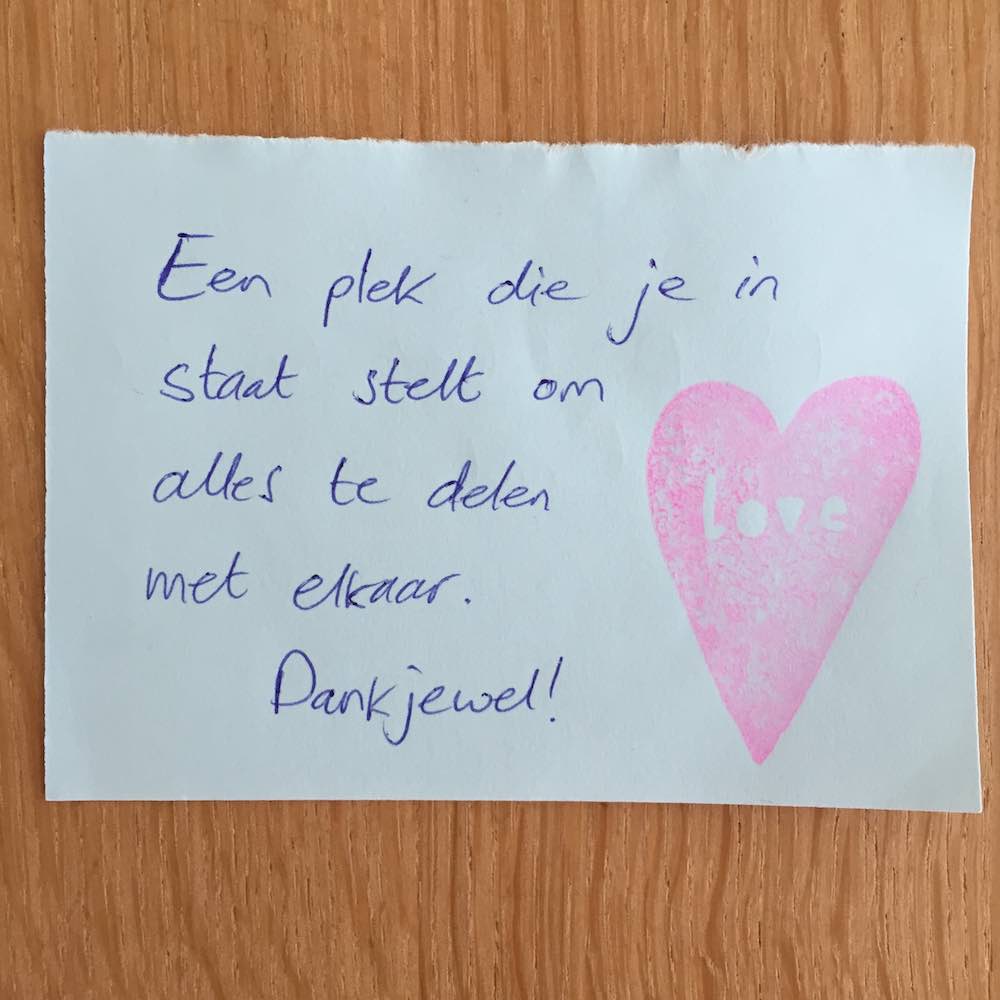 Een plek die je in
staat stelt om
alles te delen
met elkaar.
Dankjewel!
love